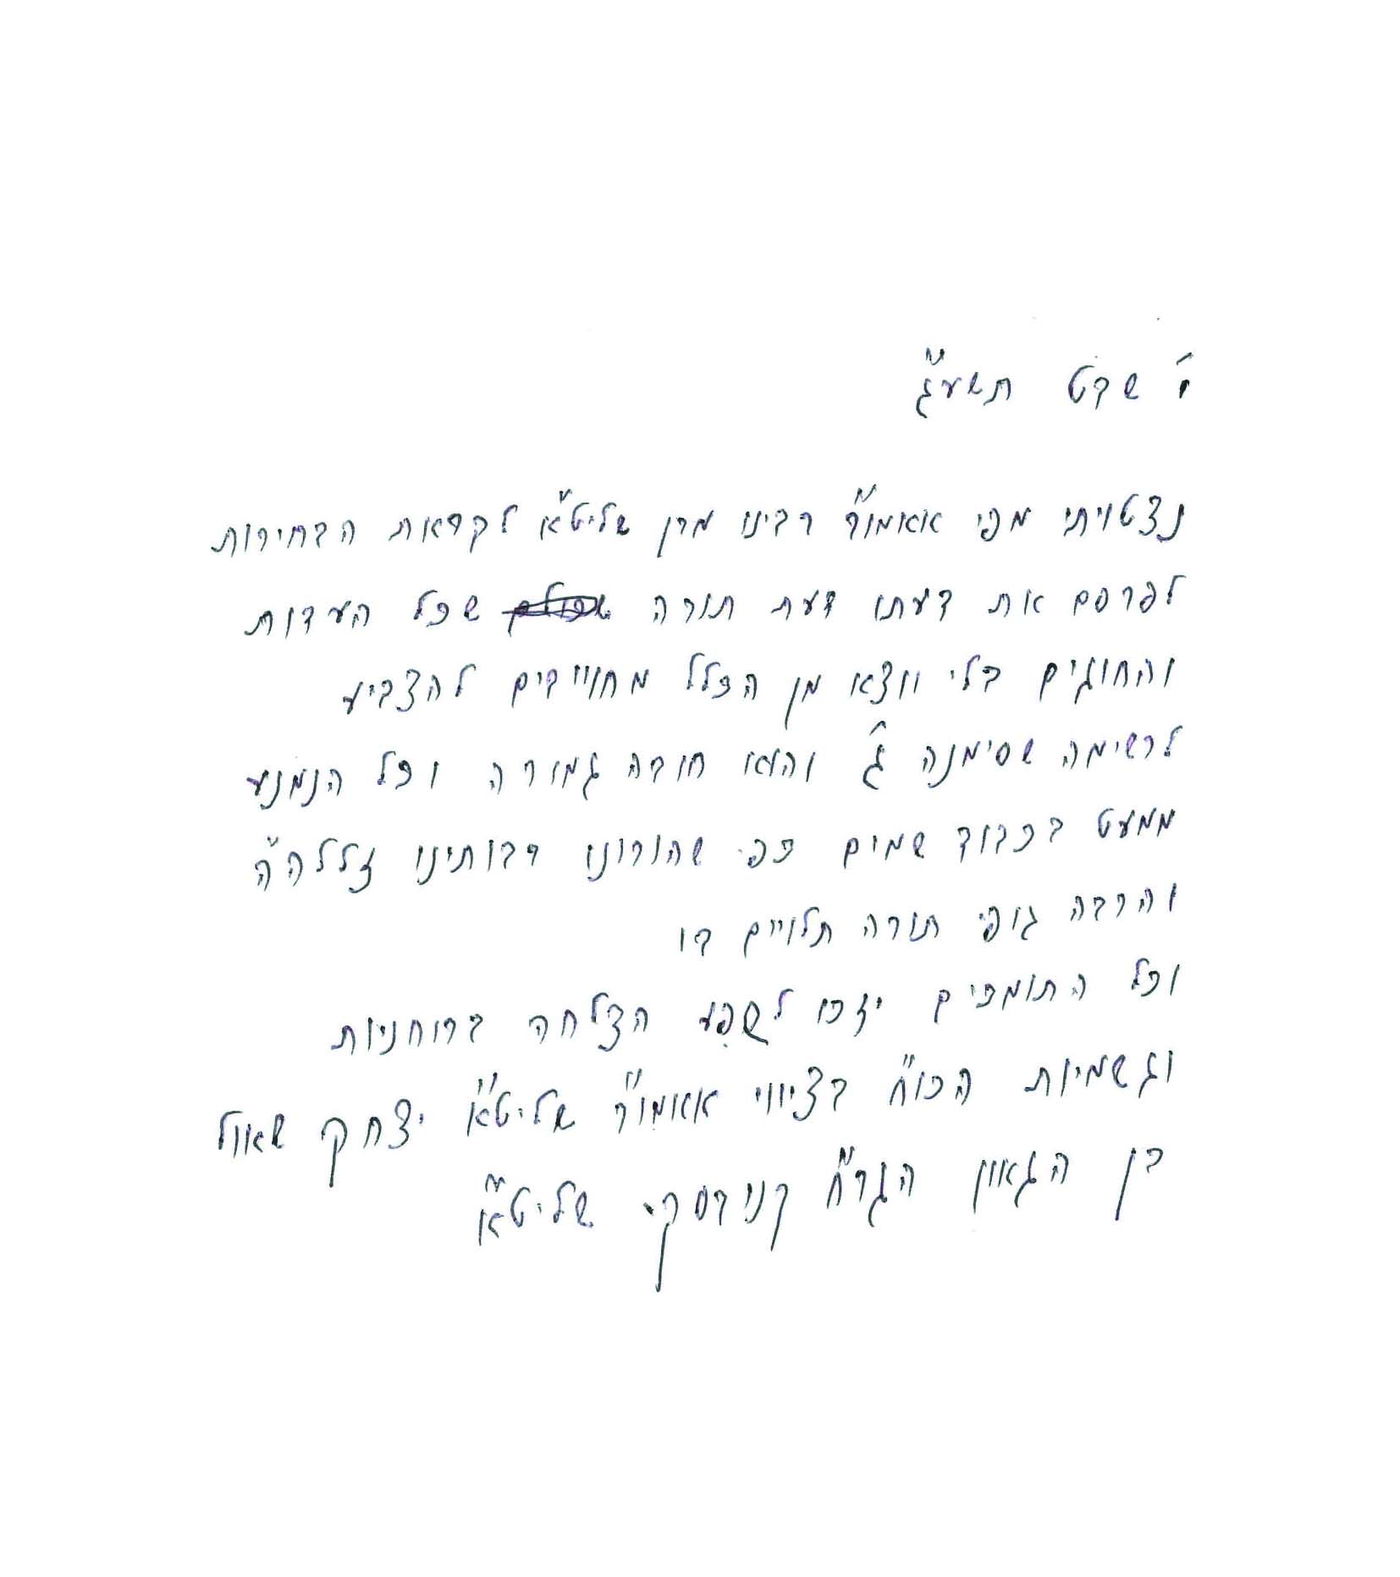 י' שבט תשע"ג
נצטויתי מפי אאמו"ר רבינו מרן שליט"א לקראת הבחירות
לפרסם את דעתו דעת תורה שכל העדות
והחוגים בלי יוצא מן הכלל מחוייבים להצביע
לרשימה שסימנה ג' והוא חובה גמורה וכל הנמנע
ממעט בכבוד שמים כפי שהורונו רבותינו זללה"ה
והרבה גופי תורה תלויים בו
וכל התומכים יזכו לשפע הצלחה ברוחניות
וגשמיות הכו"ח בציווי אאמו"ר שליט"א יצחק שאול
בן הגאון הגר"ח קניבסקי שליט"א